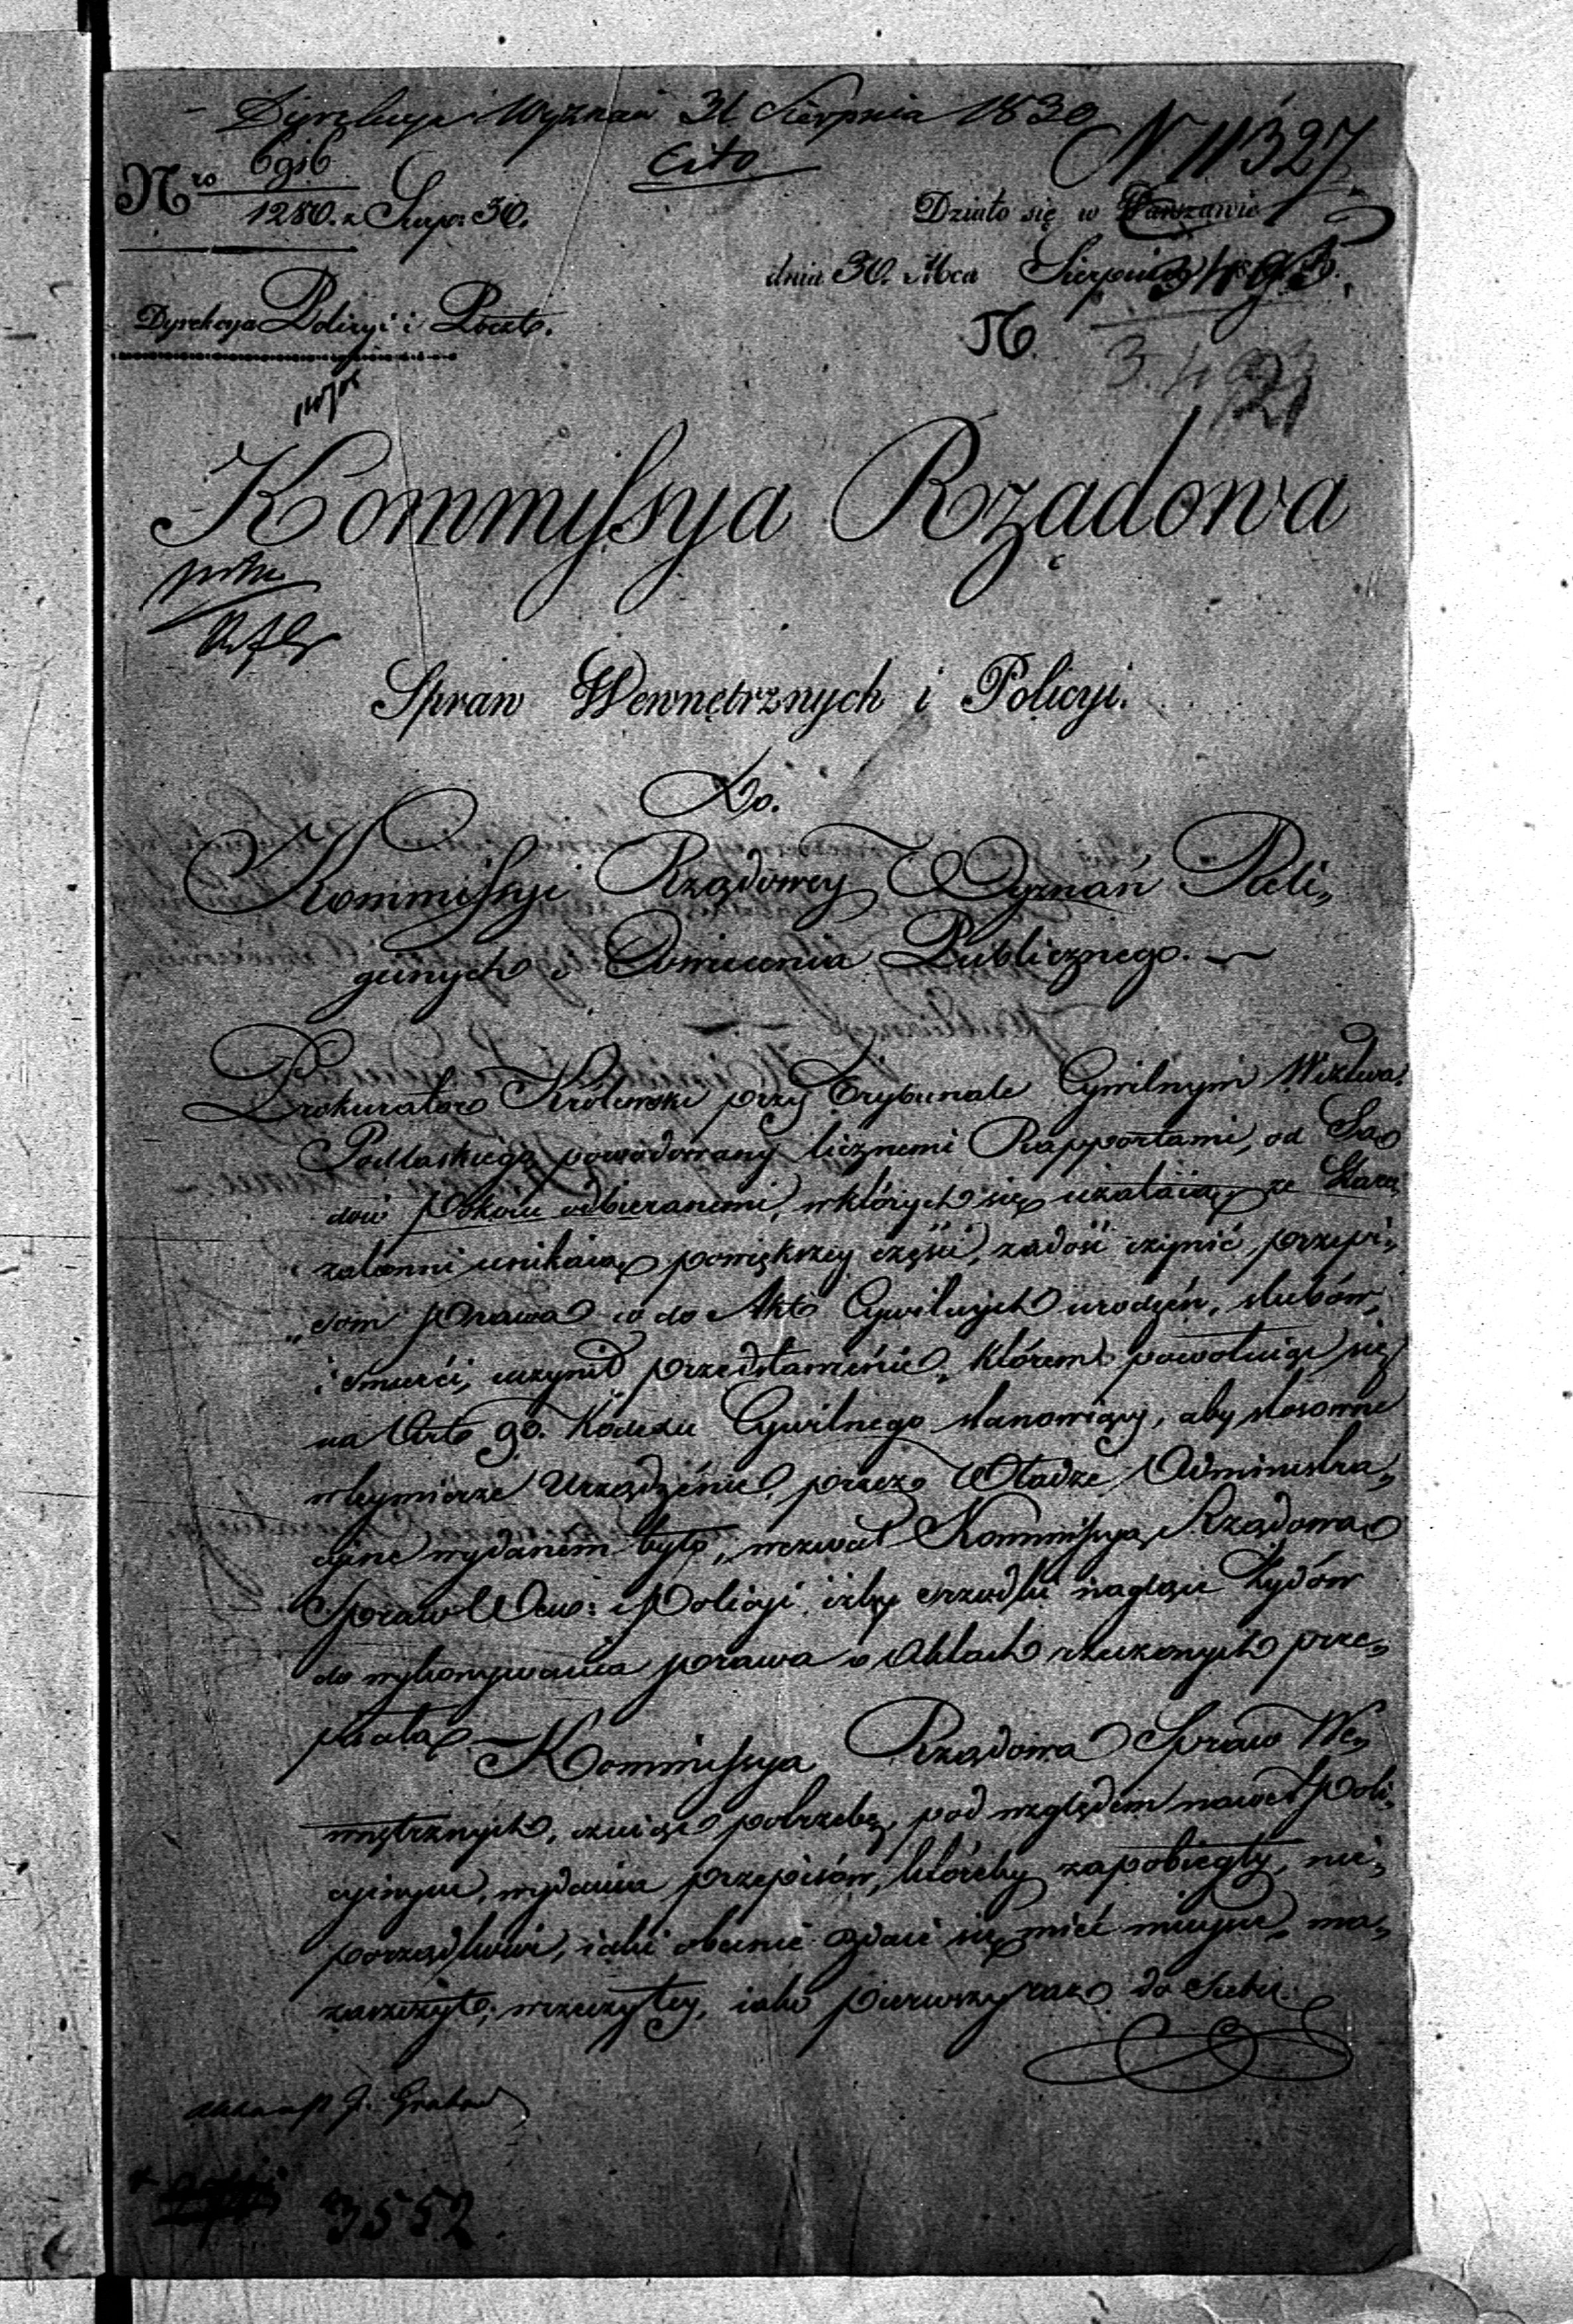 Dyrekcya Wyznań 31 Sierpnia 1830
Cito
N. 11327
Nro 6916
1280. z Sierp. 30.
Działo się w Warszawie
dnia 30. Mca Sierpnia
Dyrekcya Policyi i Poczt.
Kommissya Rządowa
Spraw Wewnętrznych i Policyi.
Do.
Kommissyi Rządowey Wyznań Reli„
giinych i Oświecenia Publicznego.
Prokurator Królewski przy Trybunale Cywilnym Wdztwa
Podlaskiego powodowany licznemi Rapportami, od Są„
dów Pokoiu odbieranemi, w których się użalaią, że Staro
zakonni unikaią powiększey części, zadość czynić, przepi„
„som prawa co do Akt Cywilnych urodzeń, ślubów,
i śmierci, uczynił przedstawienie, którem powołuiąc się
na Art. 90. Kodexu Cywilnego stanowiący, aby stosowne
w teymierze Urządzenie, przez Władze Administra„
cyine wydanem było, wezwał Kommissyą Rządową
Spraw Wew: i Policyi, iżby środki naglące Żydów
do wykonywania prawa o Aktach rzeczonych prze„
pisała. Kommissya Rządowa Spraw We„
wnętrznych, czuiąc potrzebę, pod względem nawet Poli„
cyinym, wydania przepisów, któreby zapobiegły, nie„
porządkowi, iaki obecnie zdaie się mieć mieysce, ma„
zaszczyt, w rzeczy tey, iako pierwszy raz do Siebie
3552